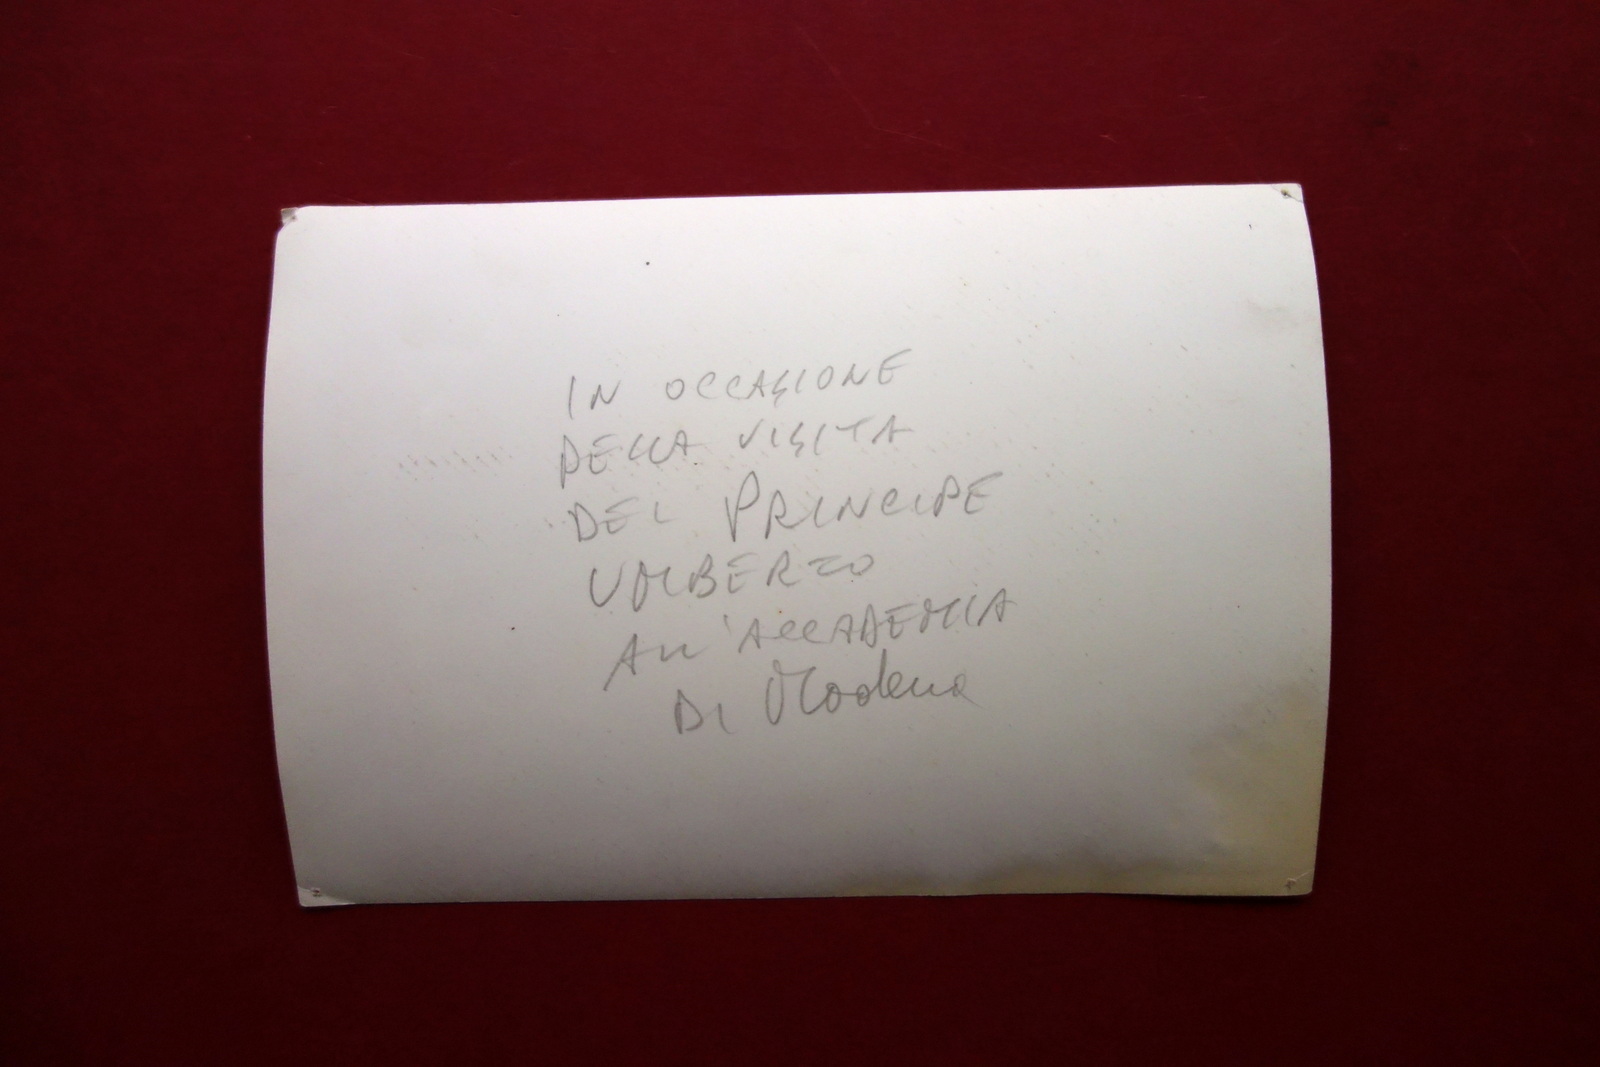 IN OCCASIONE
DELLA VISITA
DEL PRINCIPE
UMBERTO
ALL'ACCADEMIA
DI Modena